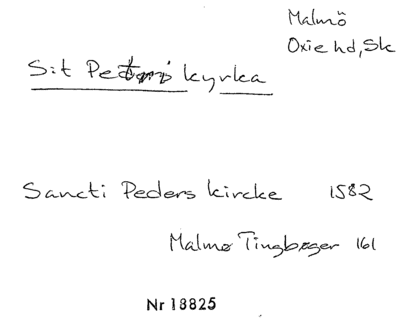 Malmö
Oxie hd, Sk
S:t Petri kyrka
Sancti Peders kircke 1582
Malmø Tingbøger 161
Nr 13825